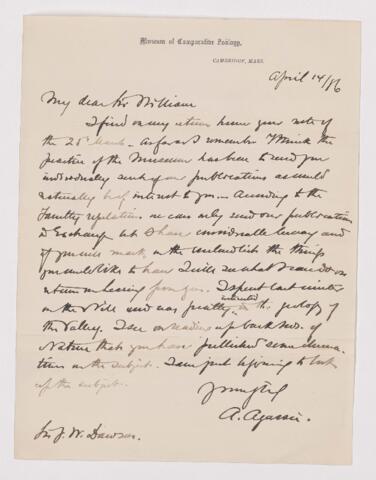 Museum of Comparative Zoology,
CAMBRIDGE, MASS.
April 14/86
My dear Sir William
I find on my return home your note of
the 25th March. As far as I remember I think the
practice of the Museum has been to send you
individually such of our publications as would
naturally be of interest to you. According to the
Faculty regulations we can only send our publications
in Exchange but I have considerable leeway and
if you will mark on the enclosed list the things
you would like to have I will see what I can do on
return on hearing from you. I spent last winter
on the Nile and was greatly interested in the geology of
the Valley. I see on reading up back nos. of
Nature that you have published some
on the subject. I am just beginning to look
up the subject.
Yours truly
A. Agassiz.
Sir J. W. Dawson.